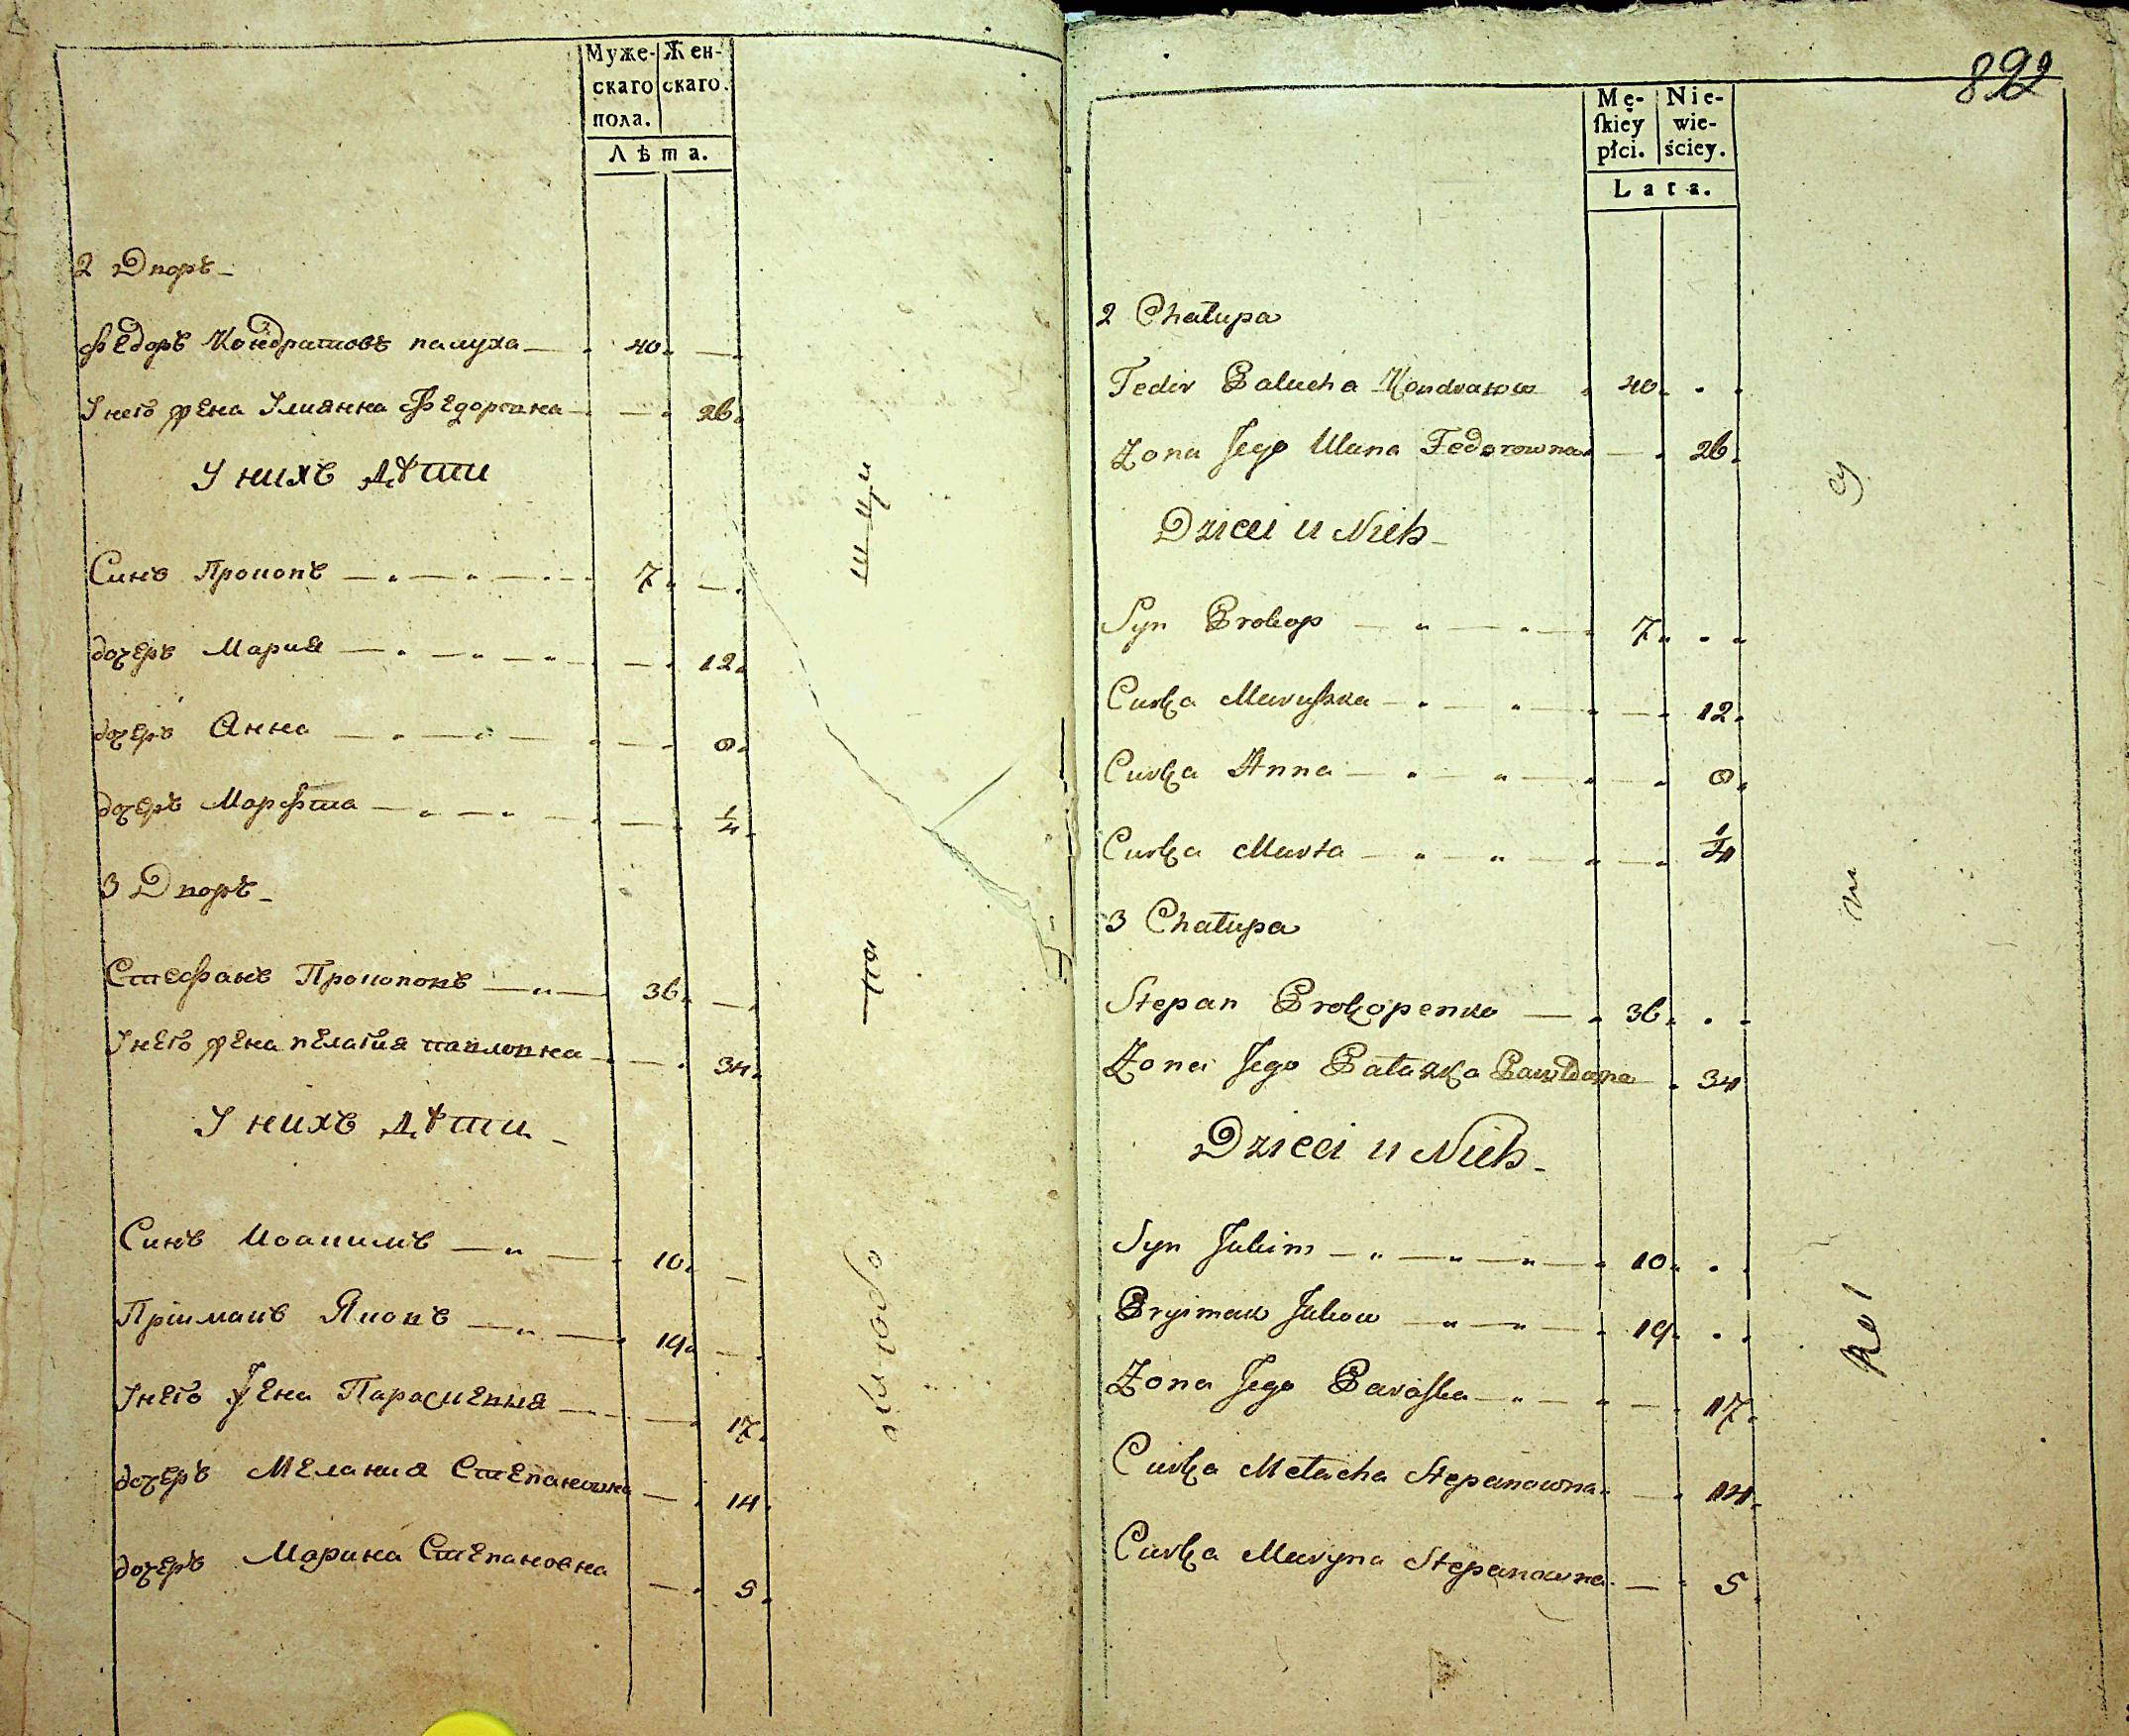 Муже-
скаго
пола.
Жен-
скаго.
Лѣта.
2 Дворъ
Федоръ Кондратовъ палуха 40
У него жена Улиянна Федоровна 26
У нихъ дѣти
Синъ Прокопъ 7
дочеръ Мария 12
дочеръ Анна 8
дочеръ Марфта 1/4
3 Дворъ
Стефанъ Прокоповъ 36
У него жена пелагия павловна 34
У нихъ дѣти
Синъ Иоакимъ 10
Пріимакъ Яковъ 19
У него жена Параскевия 17
дочеръ Мелания Степановна 14
дочеръ Марина Степановна 5
822
Mę-
ſkiey
płci.
Nie-
wie-
ściey.
Lata.
2 Chałupa
Fedir Palucha Kondratow 40
Zona Jego Ulana Fedorowna 26
Dzieci u Nich
Syn Prokop 7
Curka Maruszka 12
Curka Anna 8
Curka Marta 1/4
3 Chałupa
Stepan Prokopenko 36
Zona Jego Pałazka Pawłowna 34
Dzieci u Nich
Syn Jakim 10
Pryimak Jakow 19
Zona Jego Paraska 17
Curka Melacha Stepanowna 14
Curka Maryna Stepanowna 5